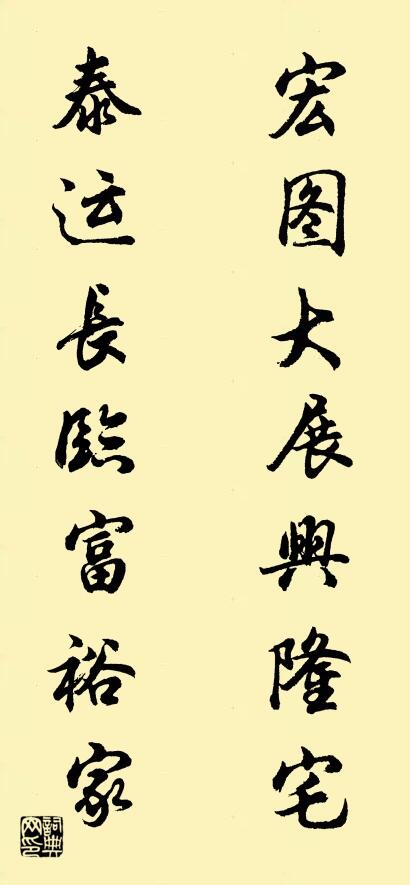 宏图大展興隆宅
泰运長臨富裕家
詞典网印